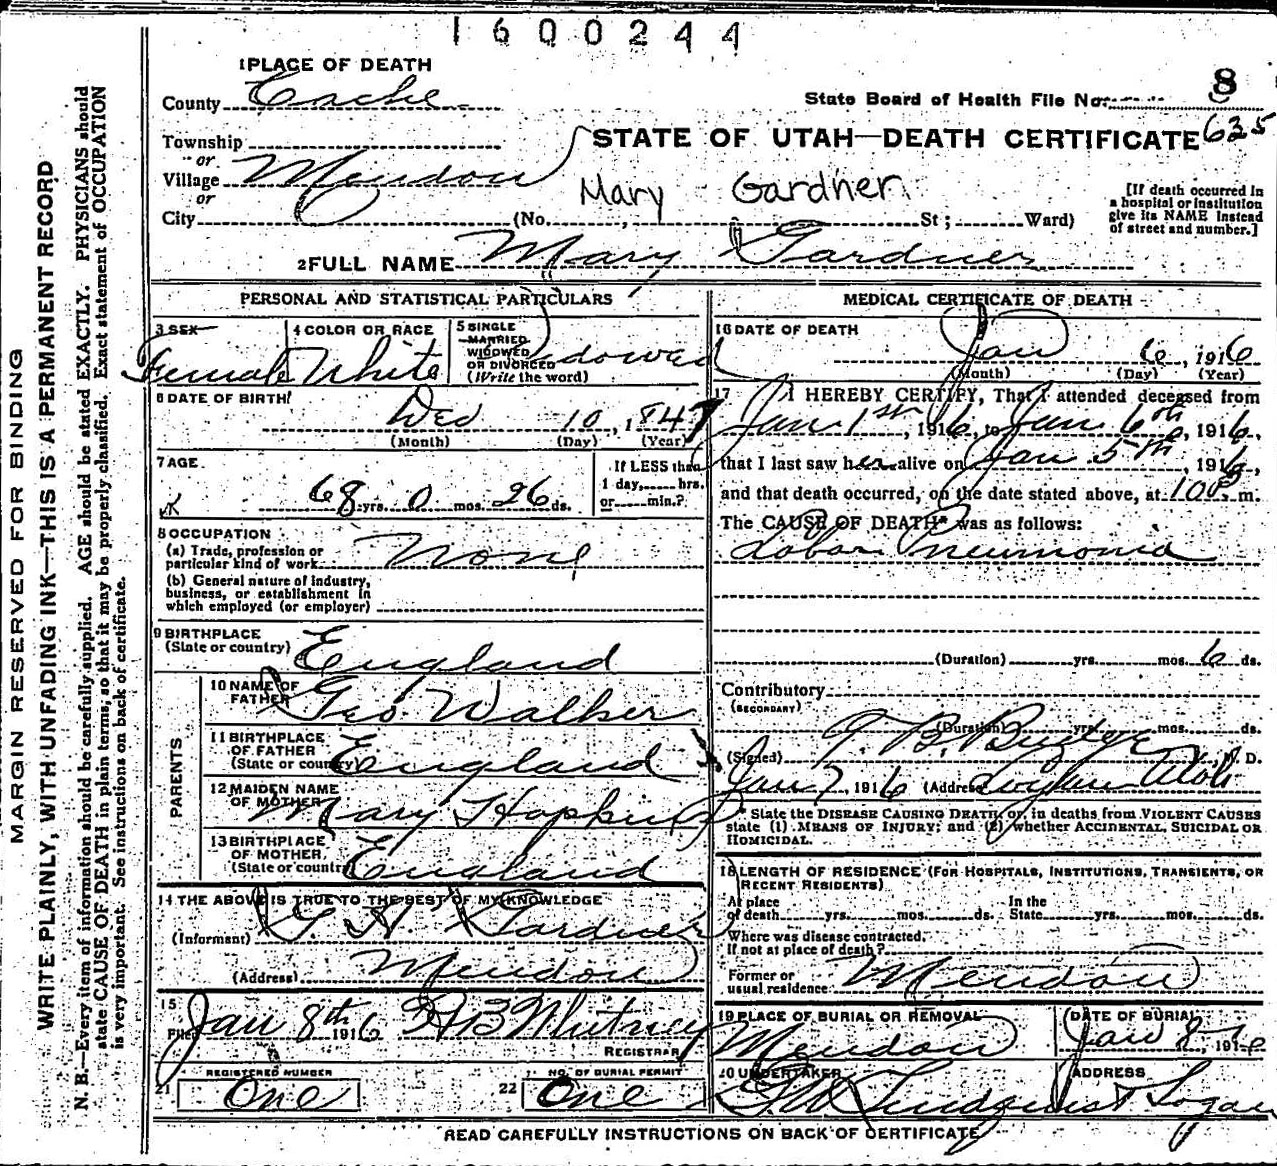 1600244
1 PLACE OF DEATH
County Cache
State Board of Health File No. 8
635
STATE OF UTAH—DEATH CERTIFICATE
Township
or
Village Mendon
or
City (No. , St ; Ward)
Mary Gardner
[If death occurred in
a hospital or institution
give its NAME instead
of street and number.]
2 FULL NAME Mary Gardner
PERSONAL AND STATISTICAL PARTICULARS
3 SEX Female
4 COLOR OR RACE White
5 SINGLE
MARRIED
WIDOWED
OR DIVORCED
(Write the word)
Widowed
6 DATE OF BIRTH
Dec 10, 1847
(Month) (Day) (Year)
7 AGE
68 yrs. 0 mos. 26 ds.
If LESS than
1 day, hrs.
or min.?
8 OCCUPATION
(a) Trade, profession or
particular kind of work None
(b) General nature of industry,
business, or establishment in
which employed (or employer)
9 BIRTHPLACE
(State or country) England
PARENTS
10 NAME OF
FATHER Geo Walker
11 BIRTHPLACE
OF FATHER
(State or country) England
12 MAIDEN NAME
OF MOTHER Mary Hopkins
13 BIRTHPLACE
OF MOTHER
(State or country) England
14 THE ABOVE IS TRUE TO THE BEST OF MY KNOWLEDGE
(Informant) Gardner
(Address) Mendon
15
Filed Jan 8th 1916 Whitney
REGISTRAR
21 REGISTERED NUMBER
One
22 NO. OF BURIAL PERMIT
One
MEDICAL CERTIFICATE OF DEATH
16 DATE OF DEATH
Jan 6, 1916
(Month) (Day) (Year)
17 I HEREBY CERTIFY, That I attended deceased from
Jan 1st, 1916, to Jan 6th, 1916,
that I last saw her alive on Jan 5th, 1916,
and that death occurred, on the date stated above, at m.
The CAUSE OF DEATH* was as follows:
Lobar Pneumonia
(Duration) yrs. mos. 6 ds.
Contributory
(SECONDARY)
(Duration) yrs. mos. ds.
(Signed) M. D.
Jan 7, 1916 (Address) Logan Utah
* State the DISEASE CAUSING DEATH, or, in deaths from VIOLENT CAUSES
state (1) MEANS OF INJURY; and (2) whether ACCIDENTAL, SUICIDAL OR
HOMICIDAL.
18 LENGTH OF RESIDENCE (FOR HOSPITALS, INSTITUTIONS, TRANSIENTS, OR
RECENT RESIDENTS)
At place
of death yrs. mos. ds.
In the
State yrs. mos. ds.
Where was disease contracted,
If not at place of death?
Former or
usual residence Mendon
19 PLACE OF BURIAL OR REMOVAL
Mendon
DATE OF BURIAL
Jan 8, 1916
20 UNDERTAKER
Lindquist
ADDRESS
Logan
READ CAREFULLY INSTRUCTIONS ON BACK OF CERTIFICATE
MARGIN RESERVED FOR BINDING
WRITE PLAINLY, WITH UNFADING INK—THIS IS A PERMANENT RECORD
N. B.—Every item of information should be carefully supplied. AGE should be stated EXACTLY. PHYSICIANS should
state CAUSE OF DEATH in plain terms, so that it may be properly classified. Exact statement of OCCUPATION
is very important. See instructions on back of certificate.